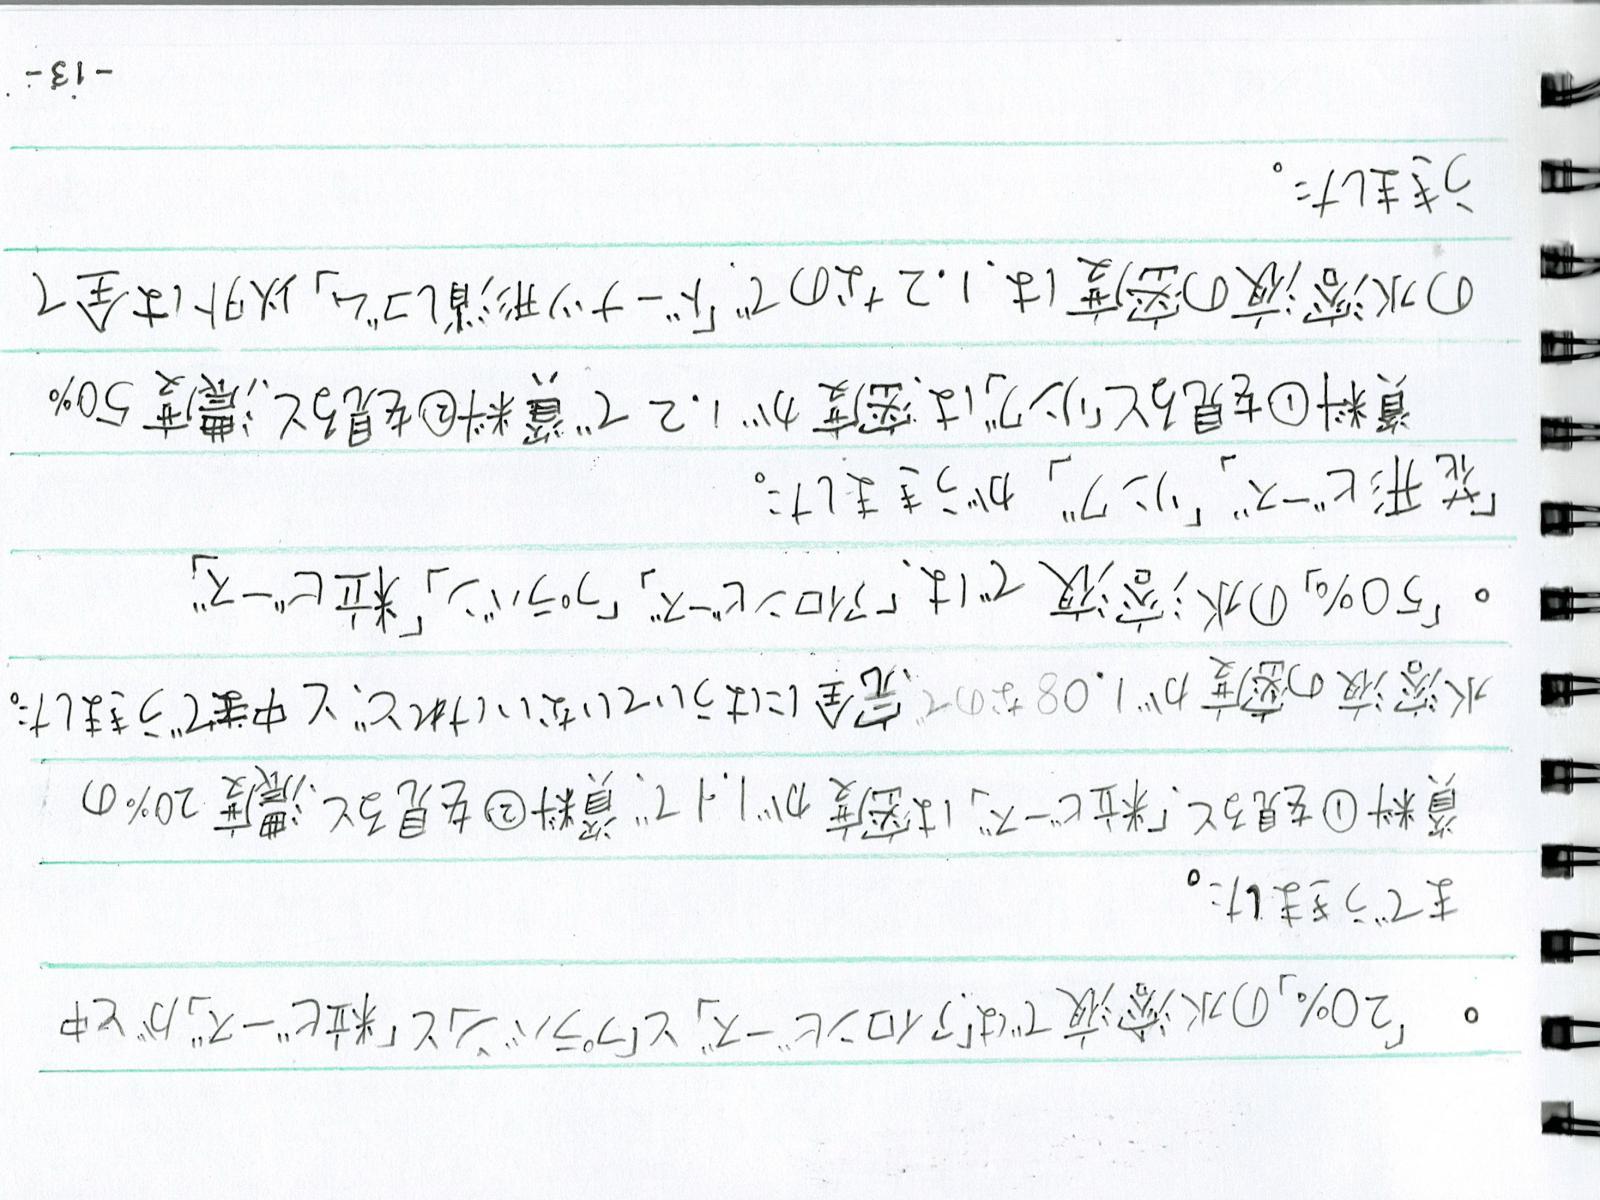 。「20%」の水溶液では「アイロンビーズ」と「プラバン」と「粒ビーズ」がと中
までうきました。
資料①を見ると、「粒ビーズ」は密度が1.1で、資料②を見ると、濃度20%の
水溶液の密度が1.08なので、完全にはういていないけれど、と中までうきました。
。「50%」の水溶液では、「アイロンビーズ」「プラバン」「粒ビーズ」
「花形ビーズ」「リング」がうきました。
資料①を見ると「リング」は、密度が1.2で資料②を見ると、濃度50%
の水溶液の密度は、1.2なので、「ドーナツ形消しゴム」以外は全て
うきました。
-13-